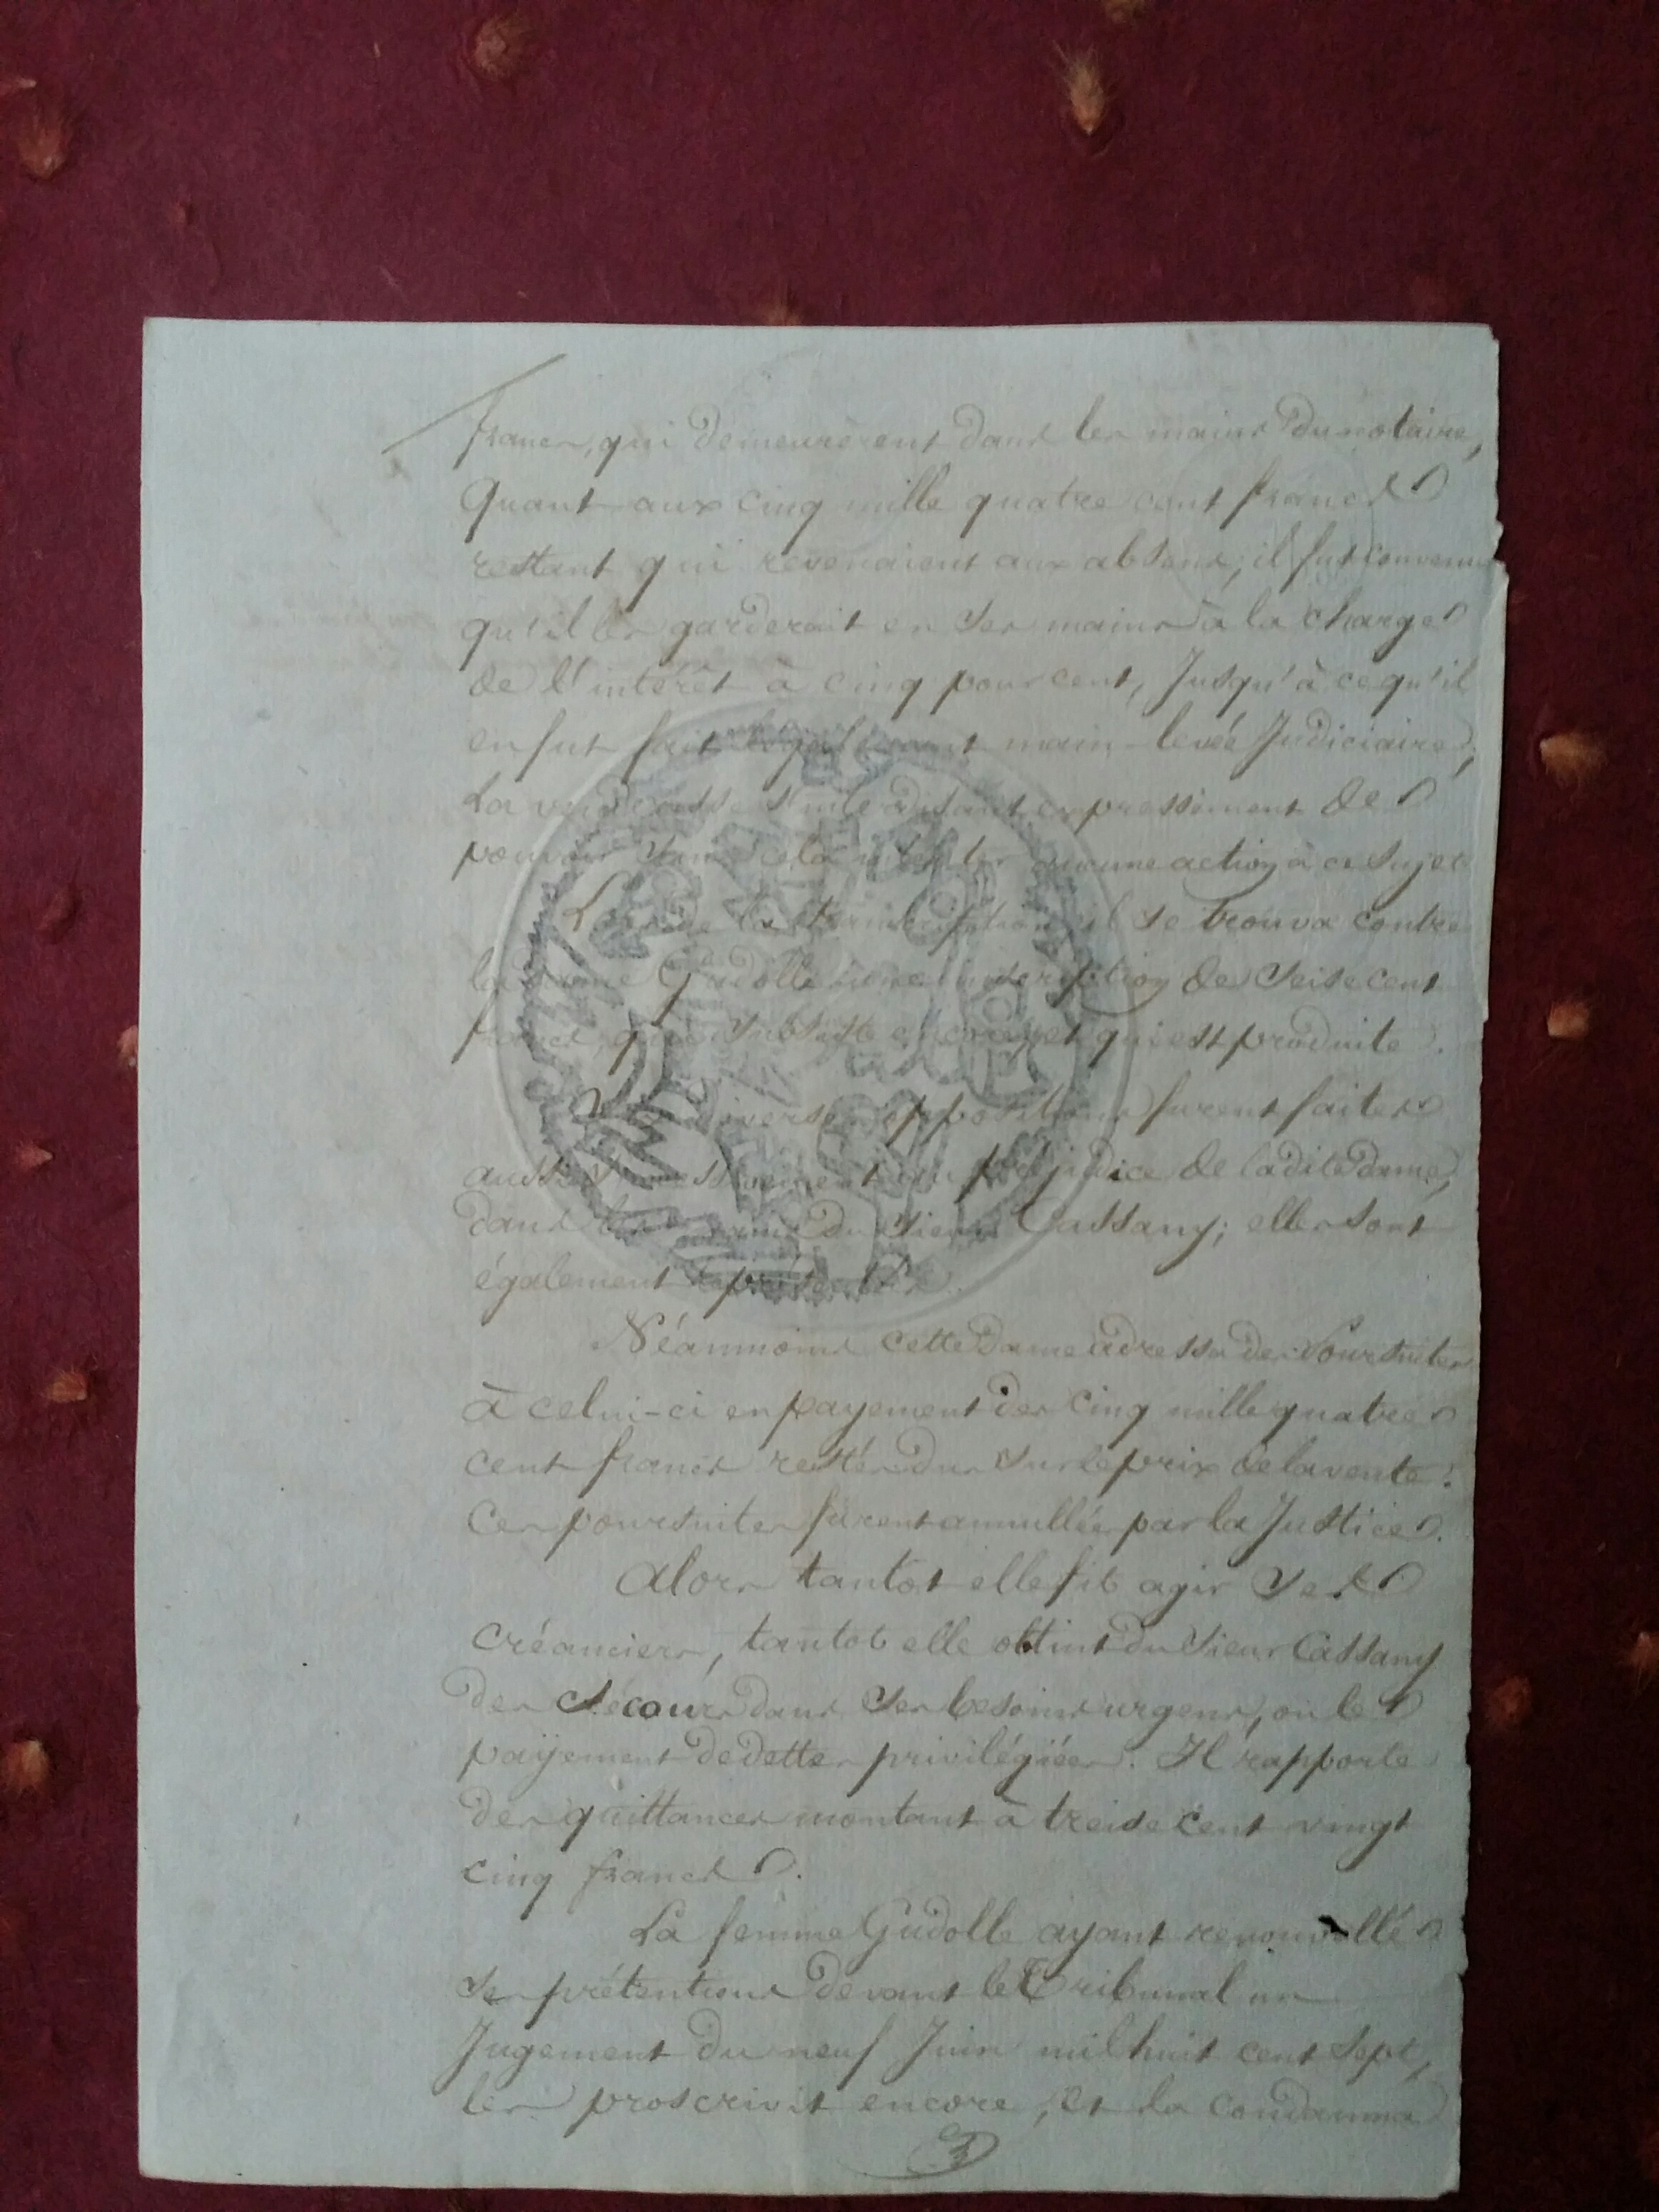 francs, qui demeurèrent dans les mains du notaire,
Quant aux cinq mille quatre cent francs
restant qui revenaient aux absens, il fut convenu
qu'il les garderait en ses mains à la charge
de l'intérêt à cinq pour cent, Jusqu'à ce qu'il
en fut fait légalement main-levée Judiciaire,
La venderesse s'interdisant expressément de
pouvoir sans cela intenter aucune action à ce sujet
Lors de la transcription, il se trouva contre
la femme Gudolle une inscription de seise cent
francs, qui subsiste encore, et qui est produite.
diverses oppositions furent faites
aussi successivement au préjudice de ladite dame,
dans les mains du sieur Cassany; elles sont
également représentées.
Néanmoins cette Dame adressa des Poursuites
à celui-ci en payement des cinq mille quatre
cent francs restés dus sur le prix de la vente:
Ces poursuites furent annullées par la Justice.
Alors tantôt elle fit agir ses
créanciers, tantot elle obtint du sieur Cassany
des secours dans ses besoins urgens, ou le
payement de dettes privilégiées. Il rapporte
des quittances montant à treise cent vingt
cinq francs.
La femme Gudolle ayant renouvellé
ses prétentions devant le Tribunal un
Jugement du neuf Juin mil huit cent sept,
les proscrivit encore, et la condamna
3